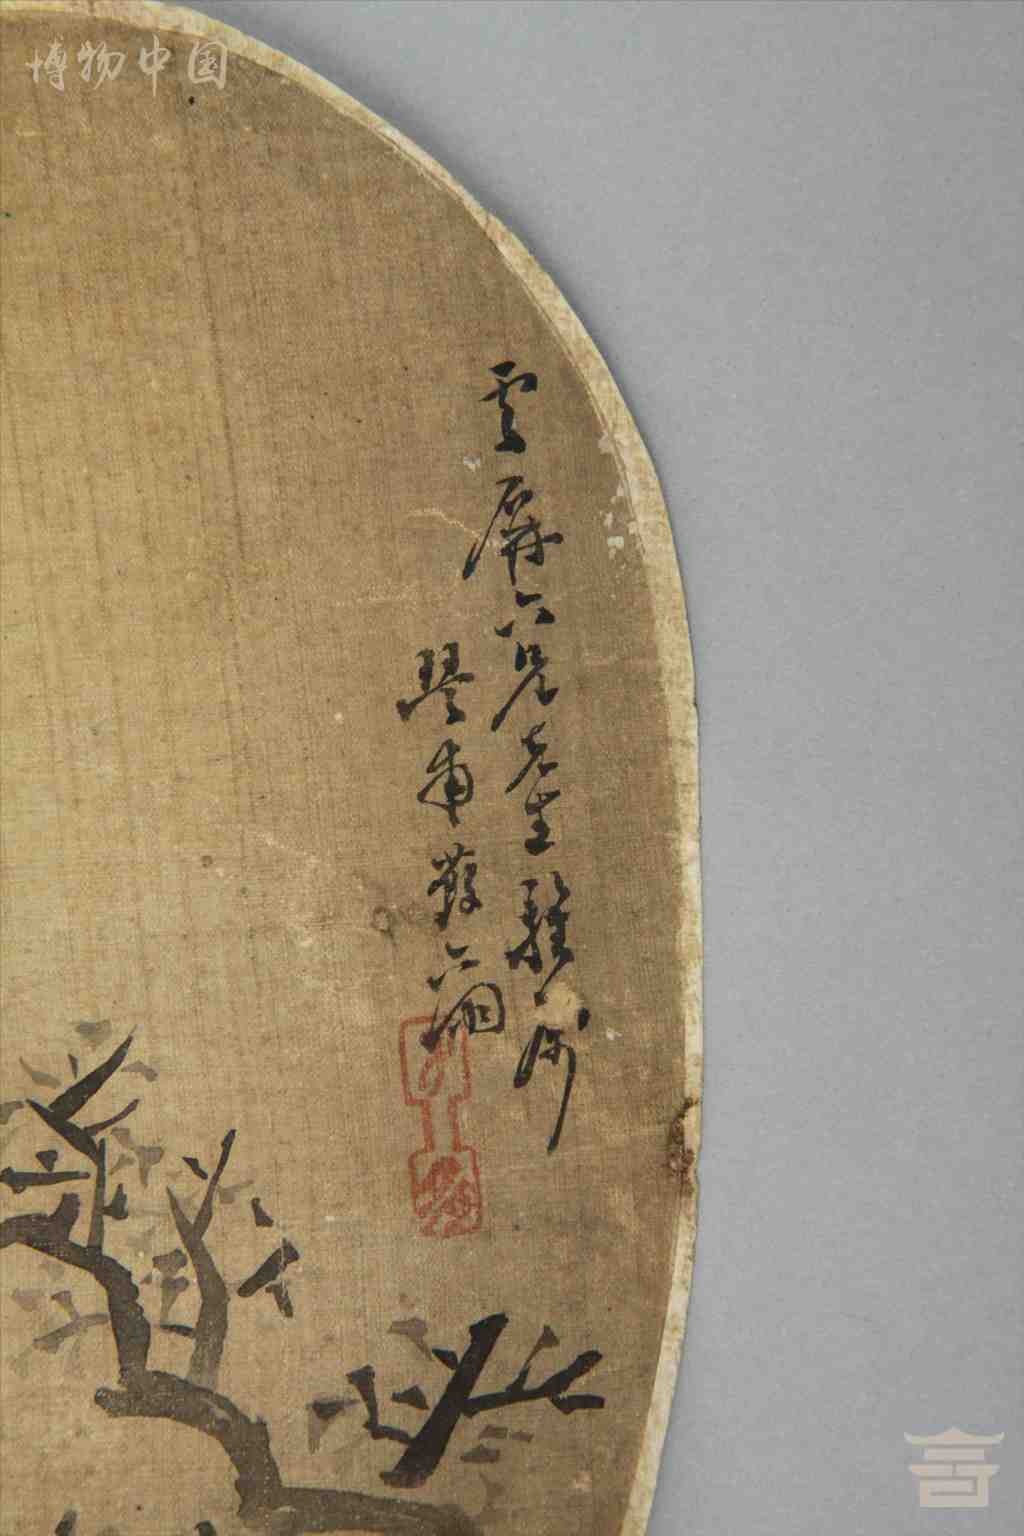 博物中国
雲屏六兄先生雅属
琴甫蘇六朋